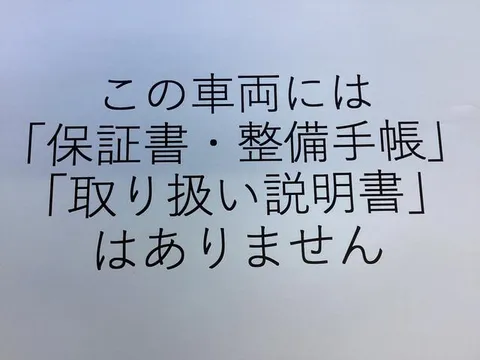 この車両には
「保証書・整備手帳」
「取り扱い説明書」
はありません